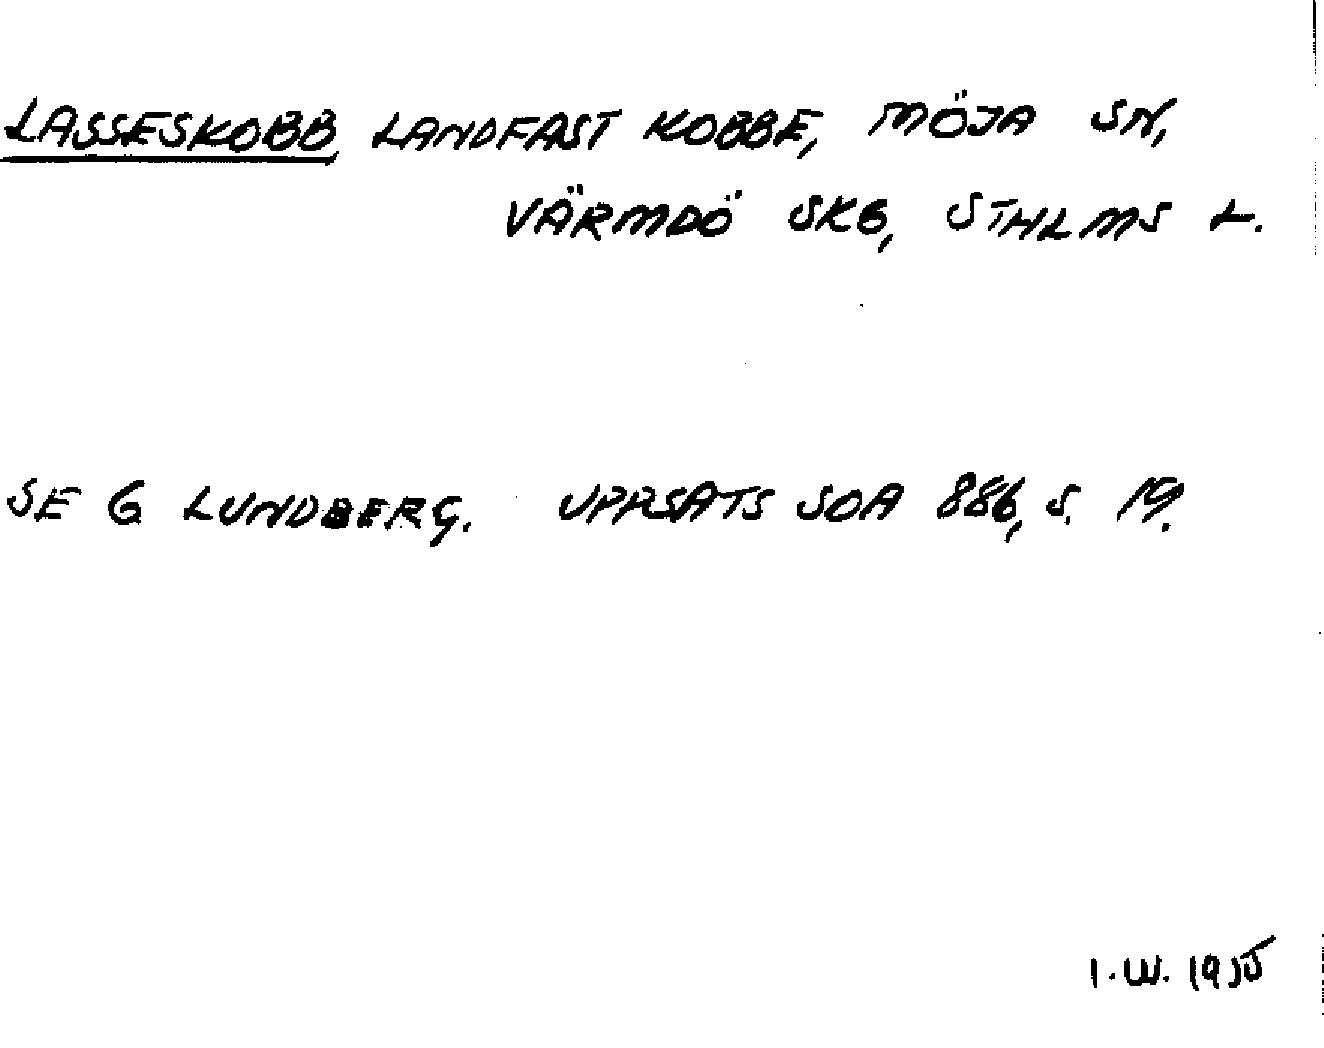 LASSESKOBB, LANDFAST KOBBE, MÖJA SN,
VÄRMDÖ SKG, STHLMS L.
SE G LUNDBERG. UPPSATS SOA 886, S. 19.
I.W. 1955